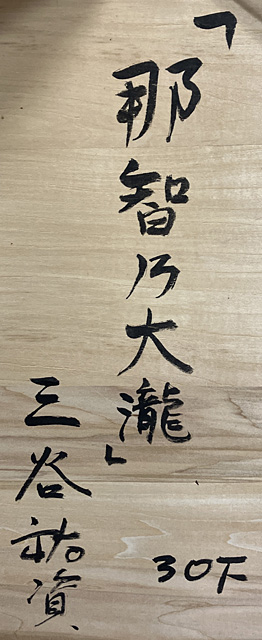 「那智乃大瀧」
三谷祐資
30下